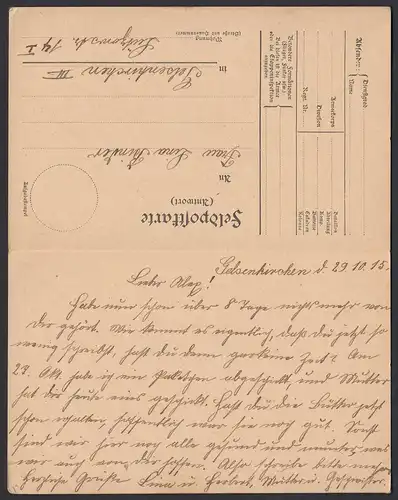 Absender:
Dienstgrad
Name
Armeekorps
Division
Regt. Nr.
Bataillon
Abteilung
Komp.
Batterie
Eskadron
Kolonne
Besondere Formationen
(Flieger, Funker usw.)
Feldpostkarte
(Antwort)
An
Frau Lina Binder
in Gelsenkirchen III
Lützowstr. 14 I
Wohnung
(Straße und Hausnummer)
Gelsenkirchen d. 29.10.15.
Lieber Alex!
Habe nun schon über 8 Tage nichts mehr von
dir gehört. Wie kommt es eigentlich, daß du jetzt so
wenig schreibst, hast du denn gar keine Zeit? Am
23. Okt. habe ich ein Paketchen abgeschickt, und Mutter
hat dir heute eins geschickt. Hast du die Butter jetzt
schon erhalten, hoffentlich war sie noch gut. Sonst
sind wir hier noch alle gesund und munter, was
wir auch von dir hoffen. Also schreibe bitte mehr
Herzliche Grüße Lina u. Herbert, Mutter u. Geschwister.